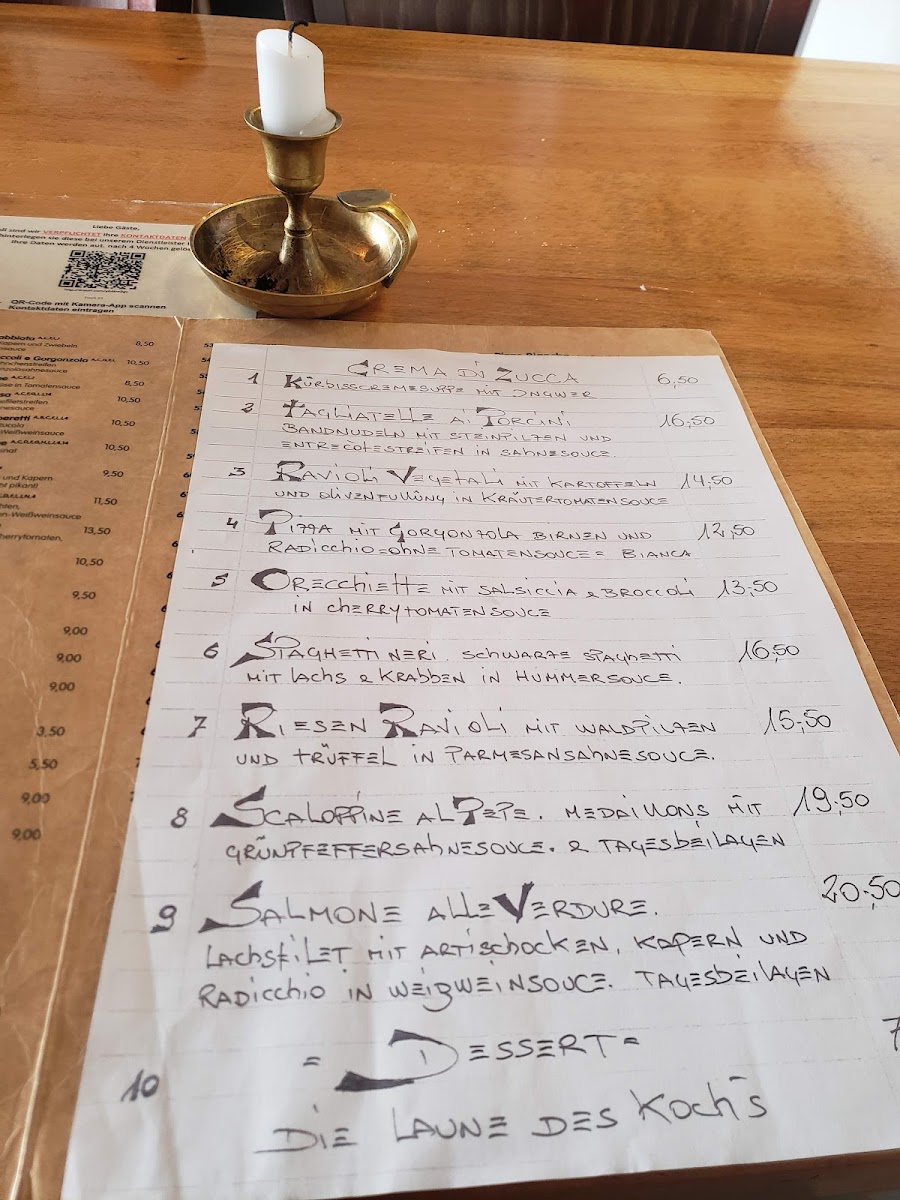 Liebe Gäste,
sind wir VERPFLICHTET Ihre KONTAKTDATEN
hinterlegen sie diese bei unserem Dienstleister
Ihre Daten werden aut. nach 4 Wochen
QR-Code mit Kamera-App scannen
Kontaktdaten eintragen
8,50
Kapern und Zwiebeln
Gorgonzola 10,50
8,50
in Tomatensauce
10,50
10,50
Weißweinsauce
10,50
9,50
und Kapern
11,50
-Weißweinsauce
13,50
10,50
9,50
9,00
9,00
9,00
3,50
5,50
9,00
9,00
CREMA DI ZUCCA
1 KÜRBISSCREMESUPPE MIT INGWER 6,50
2 TAGLIATELLE AI PORCINI 16,50
BANDNUDELN MIT STEINPILZEN UND
ENTRECOTESTREIFEN IN SAHNESOUCE
3 RAVIOLI VEGETALI MIT KARTOFFELN 14,50
UND OLIVENFULLÜNG IN KRÄUTERTOMATENSOUCE
4 PIZZA MIT GORGONZOLA BIRNEN UND 12,50
RADICCHIO=OHNE TOMATENSOUCE= BIANCA
5 ORECCHIETTE MIT SALSICCIA & BROCCOLI 13,50
IN CHERRYTOMATENSOUCE
6 SPAGHETTI NERI. SCHWARZE SPAGHETTI 16,50
MIT LACHS & KRABBEN IN HUMMERSOUCE.
7 RIESEN RAVIOLI MIT WALDPILZEN 15,50
UND TRÜFFEL IN PARMESANSAHNESOUCE.
8 SCALOPPINE AL PEPE. MEDAILLONS MIT 19,50
GRÜNPFEFFERSAHNESOUCE. & TAGESBEILAGEN
9 SALMONE ALLE VERDURE. 20,50
LACHSFILET MIT ARTISCHOCKEN, KAPERN UND
RADICCHIO IN WEIßWEINSOUCE. TAGESBEILAGEN
10 = DESSERT = 7
DIE LAUNE DES KOCH'S